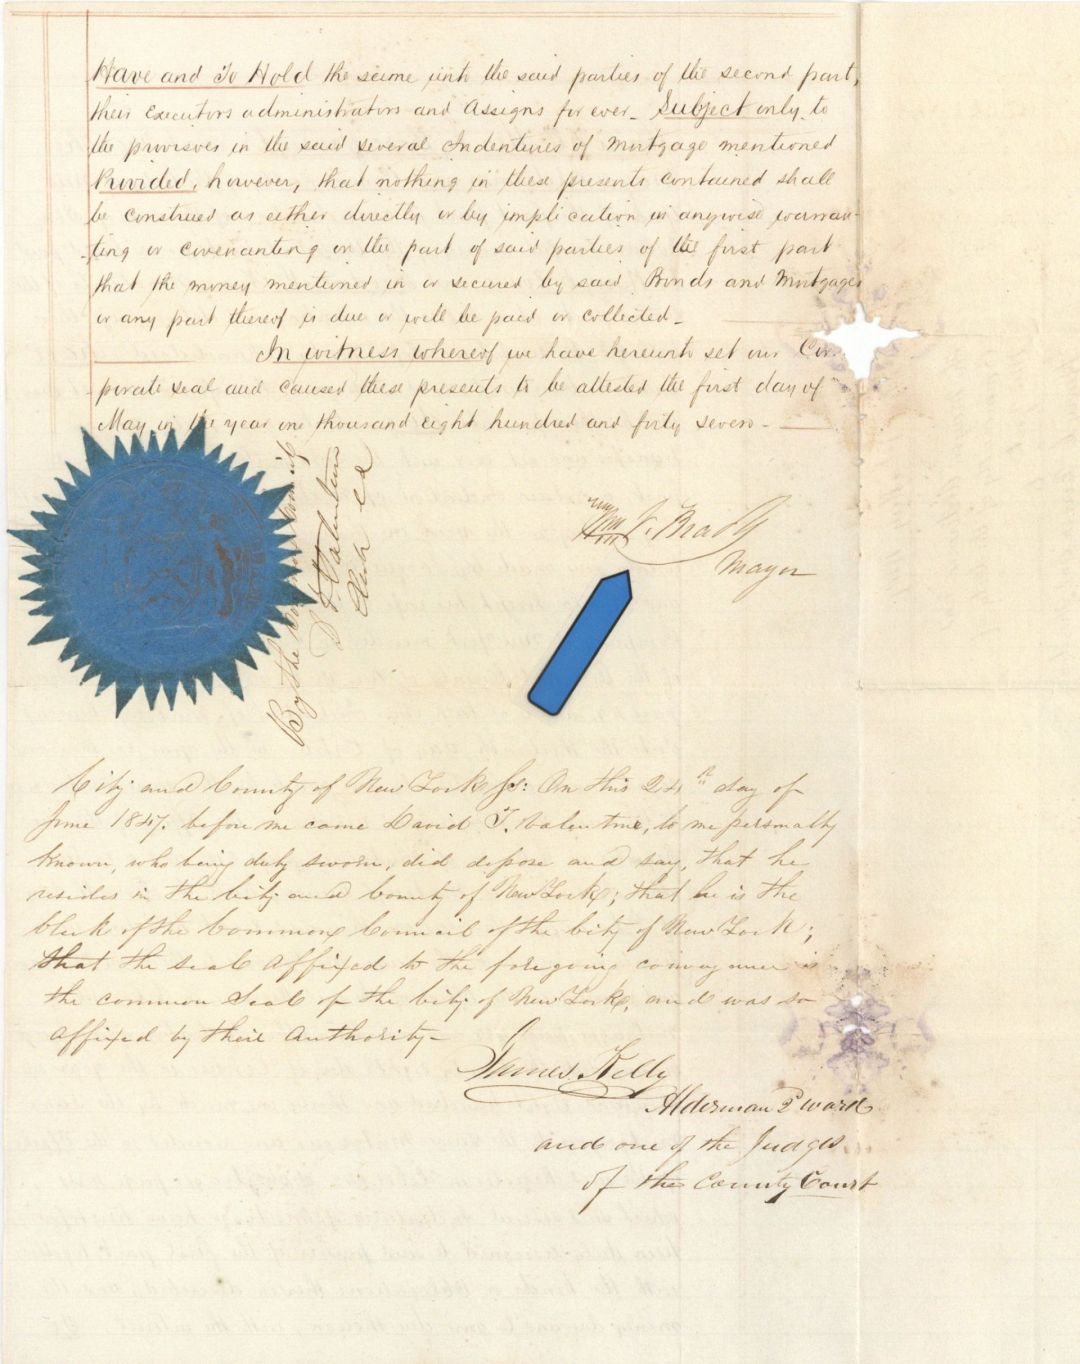 Have and To Hold the same unto the said parties of the second part,
their Executors administrators and assigns for ever. Subject only to
the provisoes in the said several Indentures of Mortgage mentioned
Provided, however, that nothing in these presents contained shall
be construed as either directly or by implication in anywise warran-
ting or covenanting on the part of said parties of the first part
that the money mentioned in or secured by said Bonds and Mortgages
or any part thereof is due or will be paid or collected_
In witness whereof we have hereunto set our Cor
porate seal and caused these presents to be attested the first day of
May in the year one thousand eight hundred and forty seven_
By the Common Council
D T Valentine
Clerk CC
Wm V. Brady
Mayor
City and County of New York Ss: On this 24th day of
June 1847, before me came David T. Valentine, to me personally
known, who being duly sworn, did depose and say, that he
resides in the City and County of New York; that he is the
Clerk of the Common Council of the City of New York;
that the seal affixed to the foregoing conveyance is
the common Seal of the City of New York, and was so
affixed by their authority_
James Kelly
Alderman ward
and one of the Judges
of the County Court